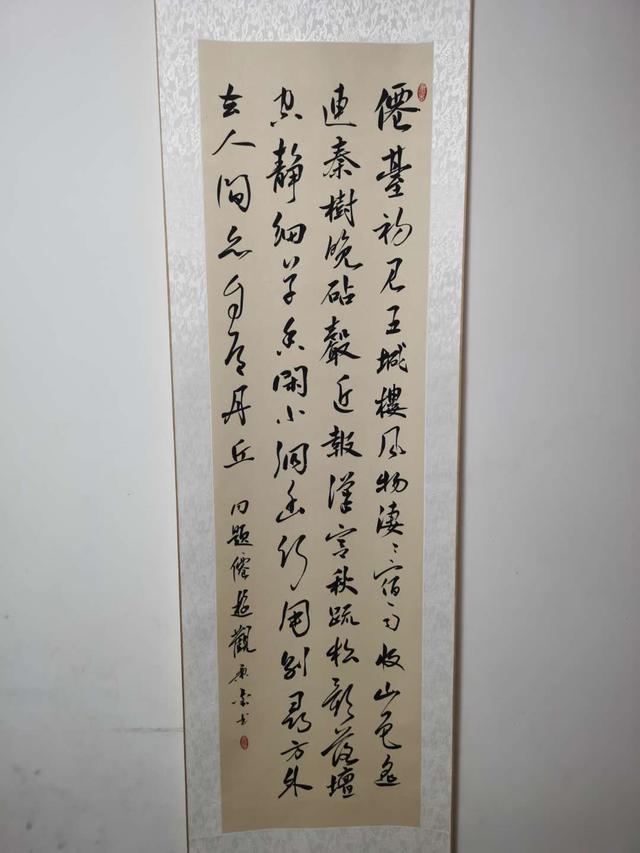 僊臺初見五城樓風物淒〻宿雨收山色遙
連秦樹晚砧聲近報漢宮秋疏松影落壇
空靜細草香閑小洞幽何用別尋方外
去人間亦自有丹丘 同題僊遊觀 書